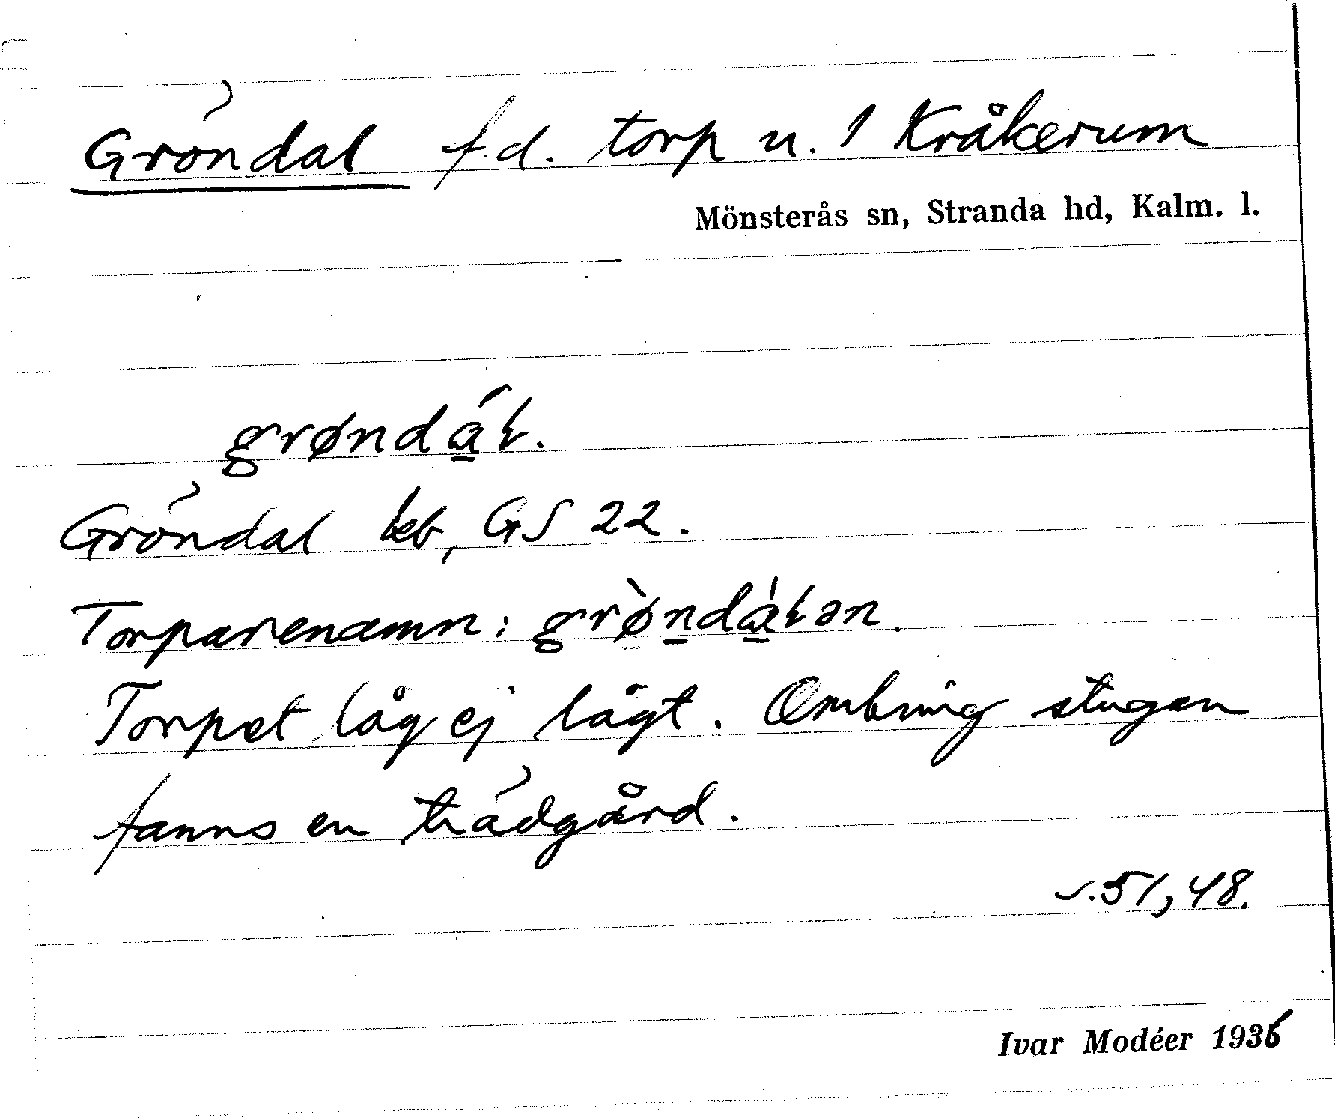 Gröndal f.d. torp u. 1 Kråkerum
Mönsterås sn, Stranda hd, Kalm. l.
grøndáɫ.
Gröndal kb, GS 22.
Torparenamn: grø̀ndáɫən.
Torpet låg ej lågt. Omkring stugan
fanns en trädgård.
s. 51, 48.
Ivar Modéer 1936